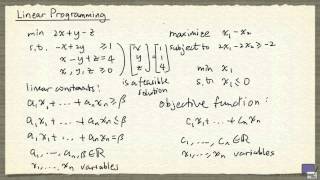 Linear Programming
min 2x+y-z
s.t. -x+2y ≥1
x-y+z=4
x,y,z ≥0
(x y z) = (1 1 4)
is a feasible
solution
maximize x₁-x₂
subject to 2x₁-2x₂≥-2
min x₁
s.t. x₁≤0
linear constraints:
a₁x₁+⋯+aₙxₙ≥β
a₁x₁+⋯+aₙxₙ≤β
a₁x₁+⋯+aₙxₙ=β
a₁,…,aₙ,β∈ℝ
x₁,…,xₙ variables
objective function:
c₁x₁+⋯+cₙxₙ
c₁,…,cₙ∈ℝ
x₁,…,xₙ variables